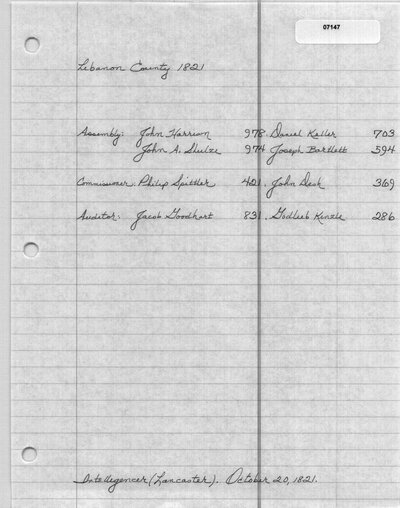 07147
Lebanon County 1821
Assembly: John Harrison 978 Daniel Keller 703
John A. Shulze 974 Joseph Bartlett 594
Commissioner: Philip Spittler 421. John Desh 369
Auditor: Jacob Goodhart 831. Godlieb Kinzle 286
Intelligencer (Lancaster). October 20, 1821.